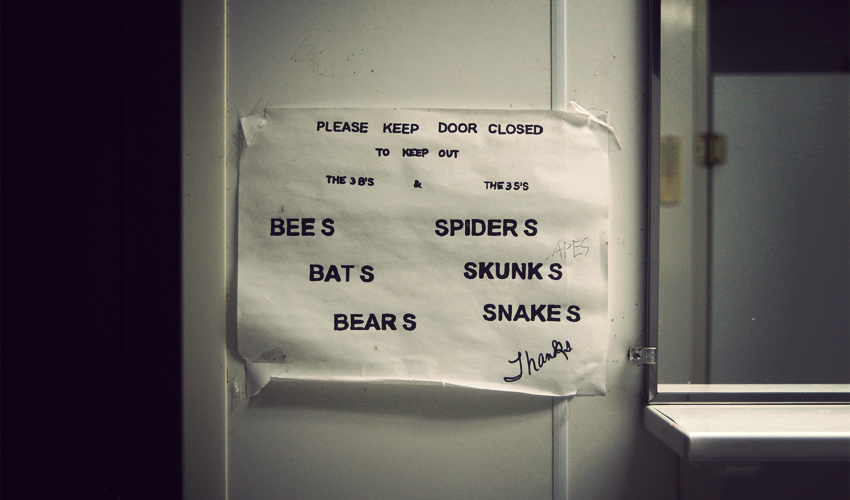 PLEASE KEEP DOOR CLOSED
TO KEEP OUT
THE 3 B'S & THE 3 S'S
BEES SPIDERS
APES
BATS SKUNKS
BEARS SNAKES
Thanks